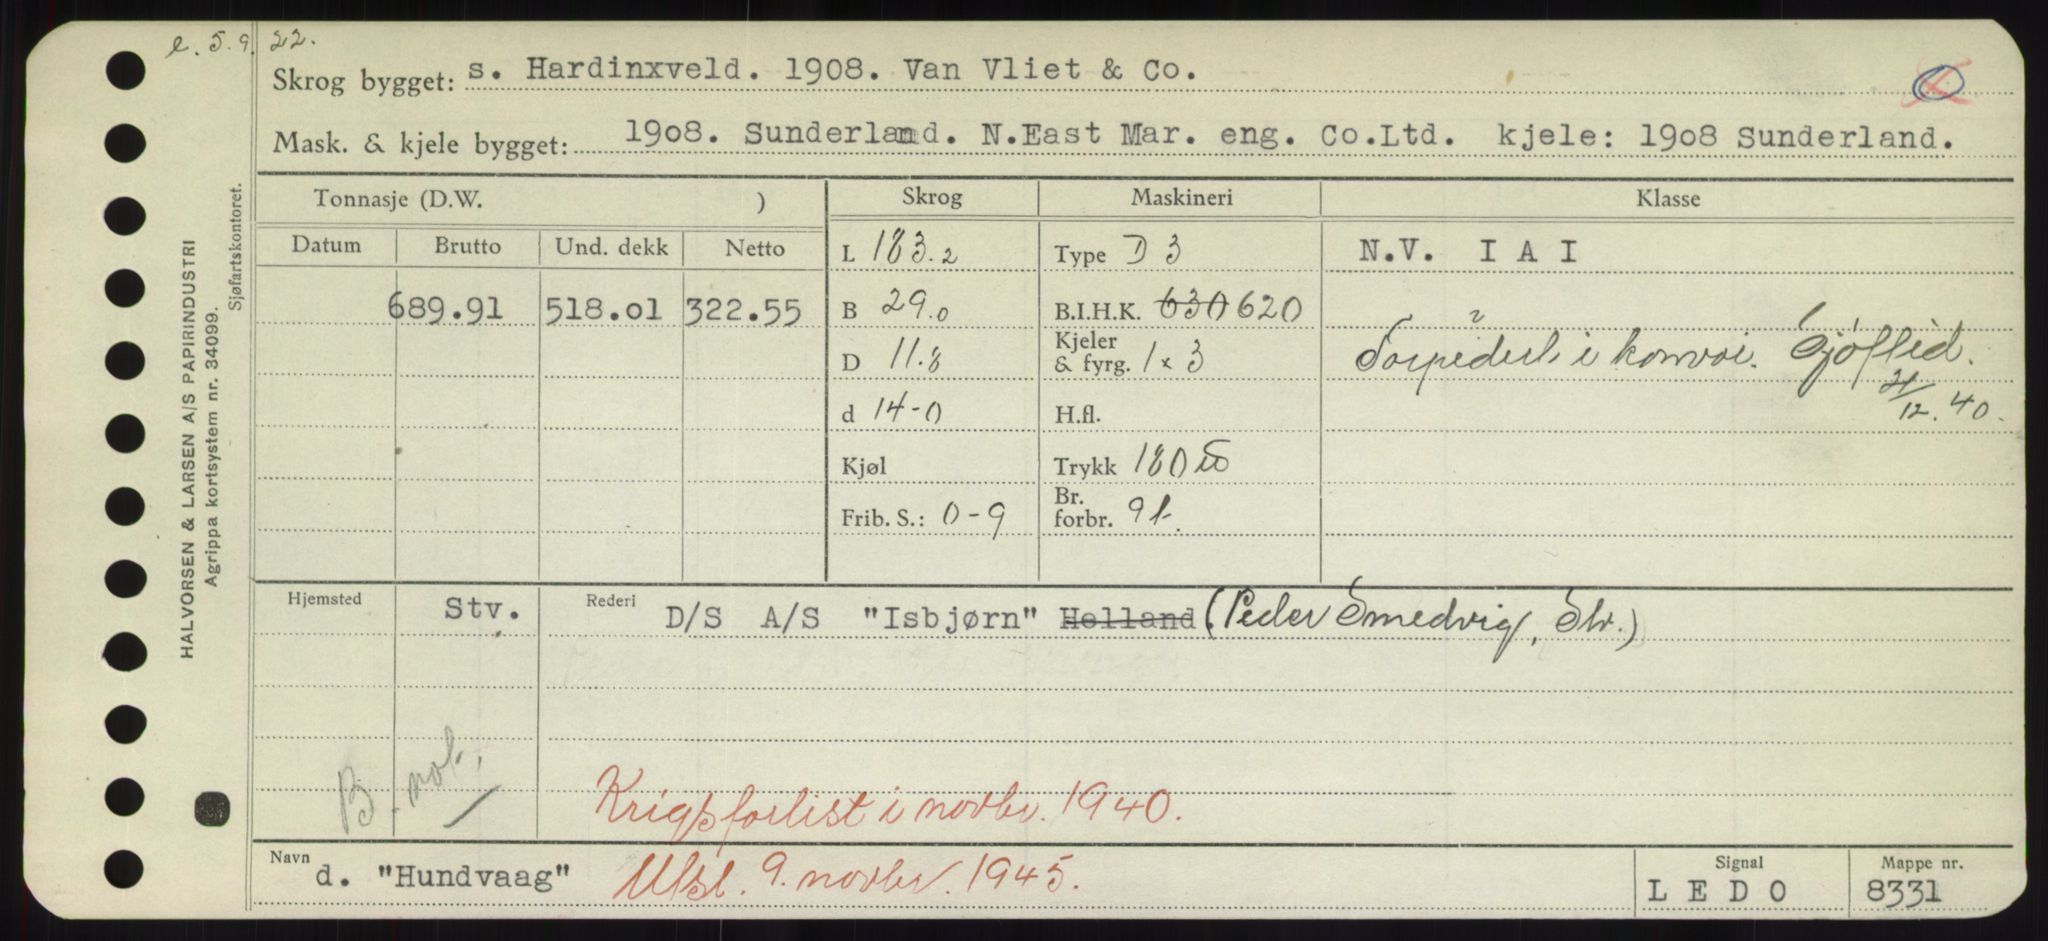 e. 5.9.22.
Skrog bygget: s. Hardinxveld. 1908. Van Vliet & Co.
Mask. & kjele bygget: 1908. Sunderland. N.East Mar. eng. Co.Ltd. kjele: 1908 Sunderland.
Tonnasje (D.W. ) Skrog Maskineri Klasse
Datum Brutto Und. dekk Netto L 183.2 Type D 3 N.V. I A I
689.91 518.01 322.55 B 29.0 B.I.H.K. 630 620
D 11.8 Kjeler & fyrg. 1 x 3 Torpedert i konvoi. Sjøfhd.
21/12.40.
d 14-0 H.fl.
Kjøl Trykk 180
Frib. S.: 0-9 Br. forbr. 9 t.
Hjemsted Stv. Rederi D/S A/S "Isbjørn" Helland (Peder Smedvig, Stv.)
B. not.
Krigsforlist i novbr. 1940.
Navn d. "Hundvaag" Utsl. 9. novbr. 1945. Signal L E D O Mappe nr. 8331
HALVORSEN & LARSEN A/S PAPIRINDUSTRI
Agrippa kortsystem nr. 34099.
Sjøfartskontoret.